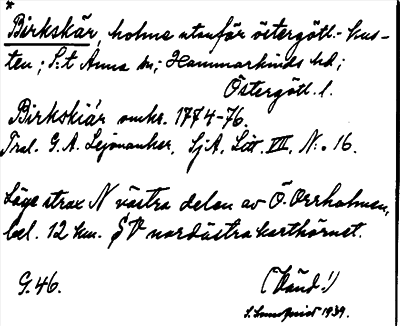 *
Birkskär, holme utanför östergötl.-kus-
ten; S:t Anna sn; Hammarkinds hd;
Östergötl. l.
Birkskiär omkr. 1774-76.
Trol. G. A. Lejonanker, SjA, Litt. VII, N:o 16.
Läge strax N västra delen av Ö. Orrholmen,
bel. 12 km. SV nordöstra karthörnet.
G. 46. (Vänd!)
1939.